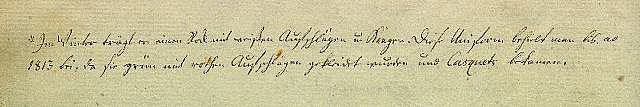 * Im Winter trägt er einen Rock mit weißen Aufschlägen u Kragen. Diese Uniform behielt man bis ao
1813 bei, da sie grün mit rothen Aufschlägen gekleidet wurden und Casquets bekamen.